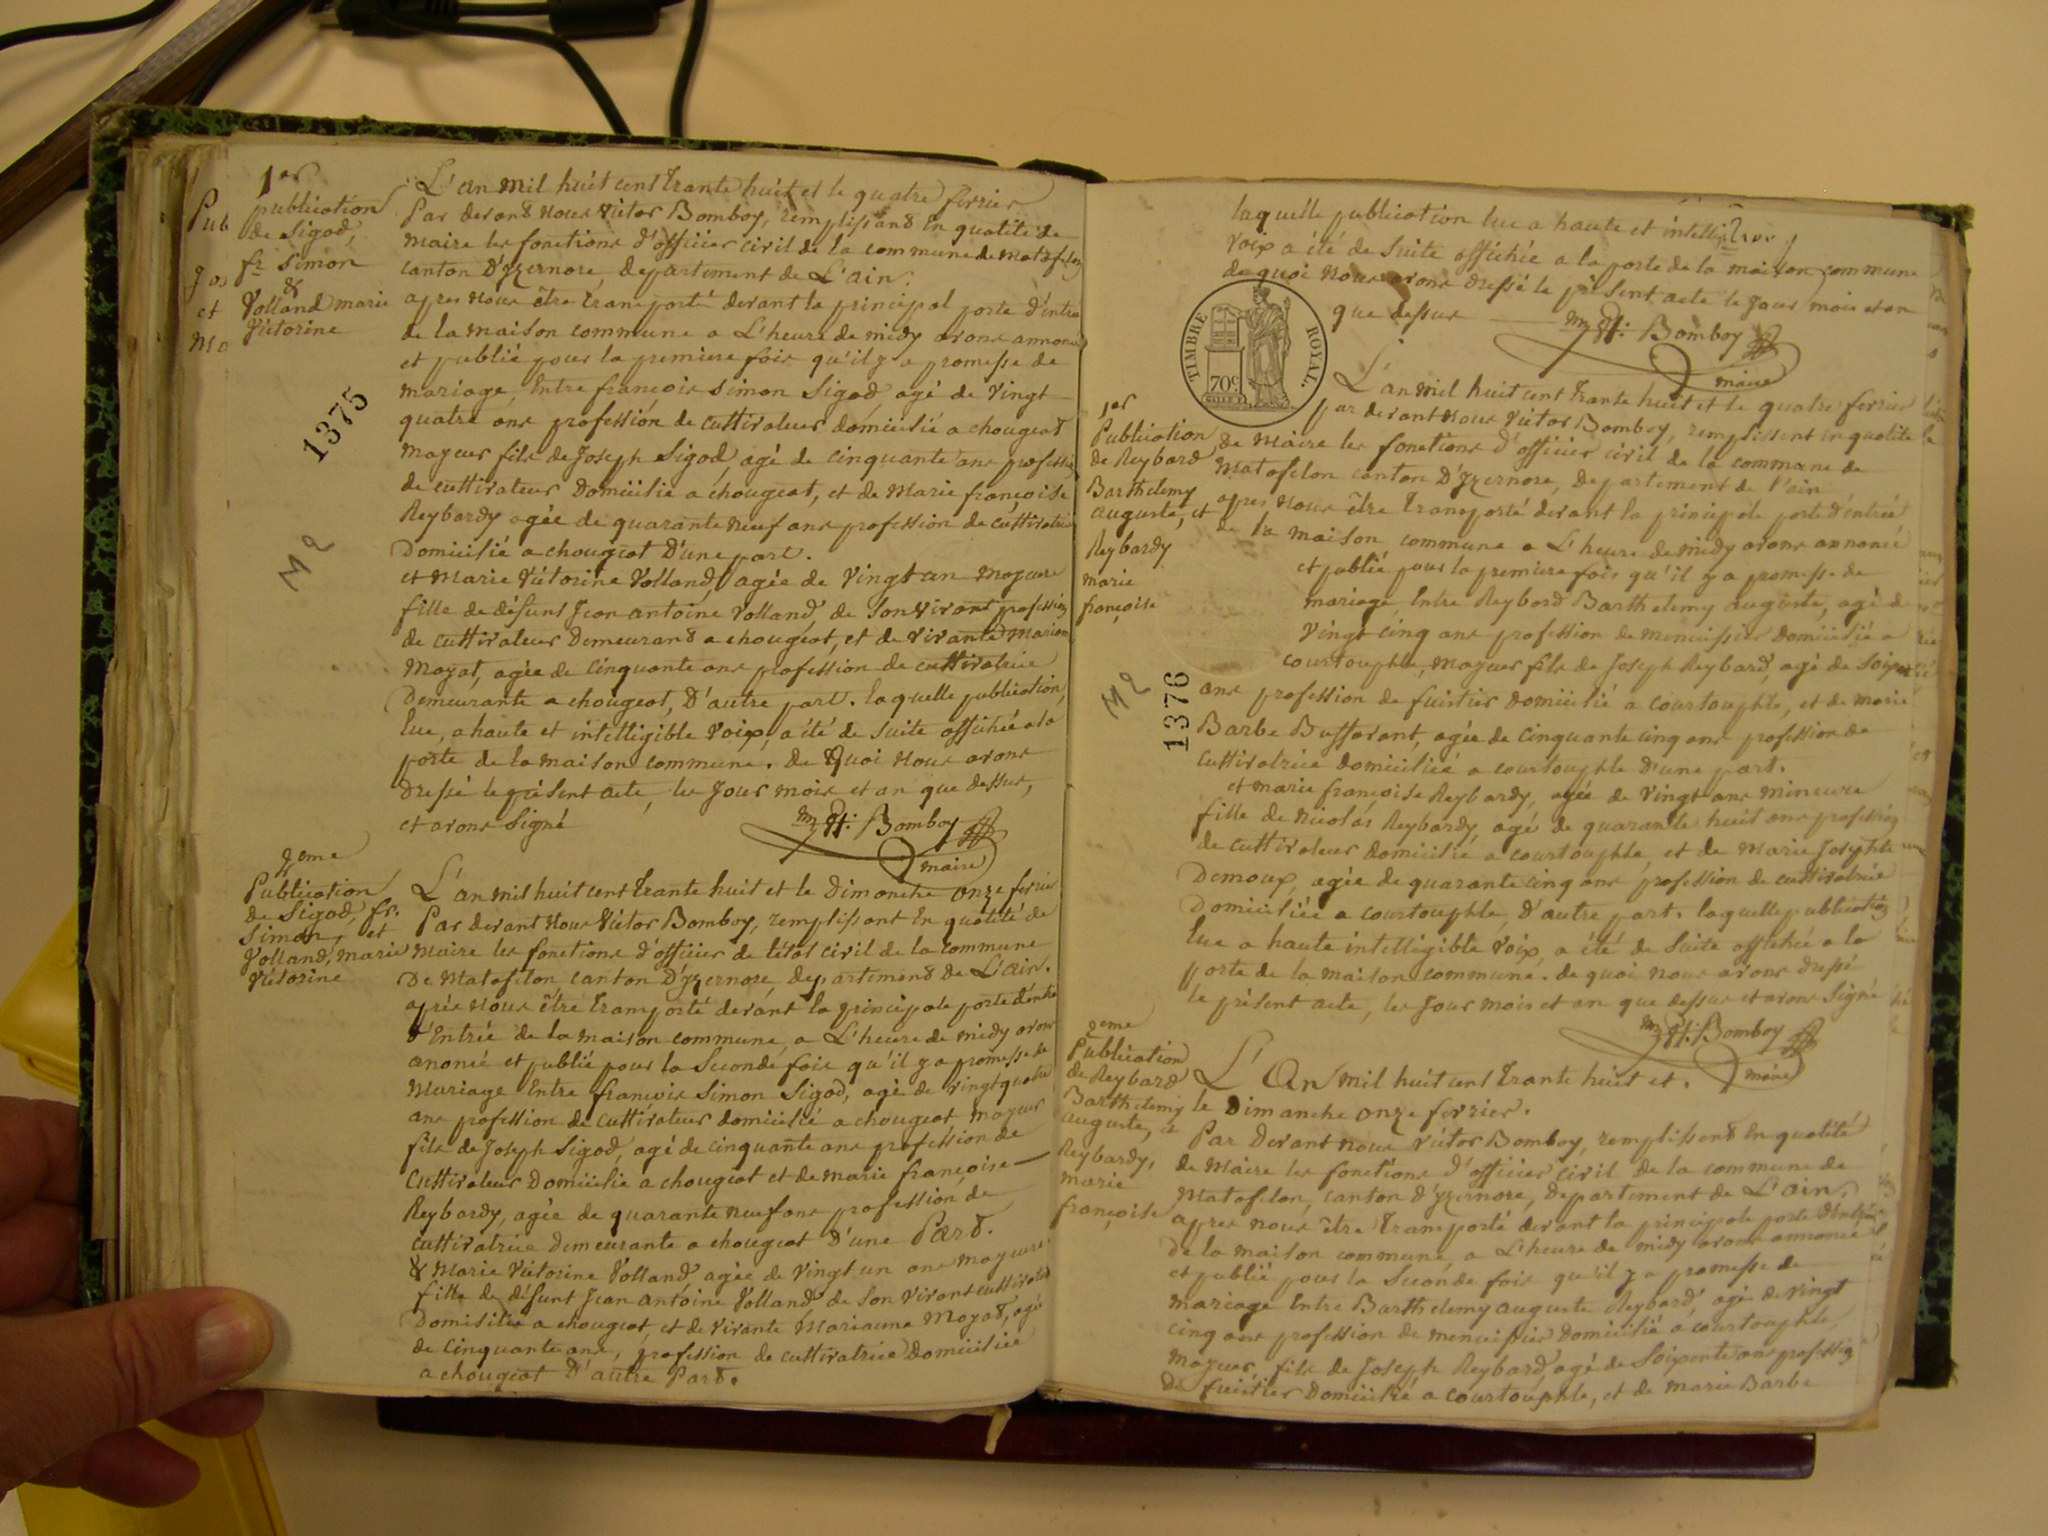 1er
publication
de Sigod,
fr. Simon
&
Volland marie
Victorine
1375
M 2
L'an mil huit cent trante huit et le quatre ferrier
Par devant nous victor Bomboy, remplissant En qualité de
maire les fonctions d'officier civil de la commune de matafelon
canton D'yzernore, departement de L'ain.
apres nous être transporté devant la principal porte d'entré
de la maison commune a L'heure de midy avons annoncé
et publié pour la premiere fois qu'il y a promesse de
mariage, Entre françois Simon Sigod agé de vingt
quatre ans profession de cultivateur domicilié a chougeat
mayeur fils de Joseph Sigod, agé de cinquante ans profession
de cultivateur Domicilié a chougeat, et de Marie françoise
Reybardy agée de quarante neuf ans profession de cultivatrice
Domicilié a chougeat D'une part.
et Marie Victorine Volland, agée de vingt an mayeure
fille de défunt Jean antoine Volland, de son vivant profession
de cultivateur Demeurant a chougeat, et de vivante Marianne
Moyat, agée de cinquante ans profession de cultivatrice
Demeurante a chougeat, D'autre part. laquelle publication,
lue, a haute et intelligible voix, a été de suite affichée a la
porte de la maison commune. de Quoi nous avons
dressé le présent acte, les Jour mois et an que dessus,
et avons signé
Bomboy
maire
2eme
Publication
de Sigod, fr.
Simon, et
Volland, marie
Victorine
L'an mil huit cent trante huit et le Dimanche onze ferrier
Par devant nous Victor Bomboy, remplissant En qualité de
Maire les fonctions d'officier de l'état civil de la commune
De Matafelon canton D'yzernore, departement de L'ain.
après nous être transporté devant la principale porte d'entré
d'Entrée de la maison commune, a L'heure de midy avons
anoncé et publié pour la Seconde fois qu'il y a promesse de
Mariage Entre françois Simon Sigod, agé de vingt quatre
ans profession de cultivateur domicilié a chougeat mayeur
fils de Joseph Sigod, agé de cinquante ans profession de
cultivateur Domicilié a chougeat et de marie françoise
Reybardy, agée de quarante neuf ans profession de
cultivatrice demeurante a chougeat d'une Part.
& Marie Victorine Volland agée de vingt un ans mayeure
fille de défunt Jean antoine Volland de son vivant cultivateur
Domisilié a chougeat, et de vivante Marianne Moyat, agée
de cinquante ans, profession de cultivatrice domiciliée
a chougeat D'autre Part.
laquelle publication lue a haute et intelligible
voix a été de suite affichée a la porte de la maison commune
de quoi nous avons dressé le présent acte le Jour mois et an
que dessus
Bomboy
maire
TIMBRE ROYAL.
70c.
1er
Publication
de Reybard
Barthelemy
auguste, et
Reybardy
marie
françoise
M 2
1376
L'an mil huit cent trante huit et le quatre ferrier
par devant nous Victor Bomboy, remplissent en qualité
de Maire les fonctions d'officier civil de la commune de
Matafelon canton D'yzernore, Departement de l'ain
apres nous être transporté devant la principale porte d'entrée
de la maison commune a L'heure de midy avons annoncé
et publié pour la premiere fois qu'il y a promesse de
mariage, Entre Reybard Barthelemy auguste, agé de
vingt cinq ans profession de menuissier domicilié a
courtouphle, mayeur fils de Joseph Reybard, agé de soixante
ans profession de fuistier Domicilié a courtouphle, et de marie
Barbe Buffarant, agée de cinquante cinq ans profession de
cultivatrice domiciliée a courtouphle d'une part.
et marie françoise Reybardy, agée de vingt ans mineure
fille de nicolas Reybardy agé de quarante huit ans profession
de cultivateur domicilié a courtouphle, et de Marie Josephte
Demoux, agée de quarante cinq ans profession de cultivatrice
Domiciliée a courtouphle, d'autre part. laquelle publication
lue a haute intelligible voix, a été de suite affichée a la
porte de la maison commune. de quoi nous avons dressé
le présent acte, les Jour mois et an que dessus et avons signé
Bomboy
maire
2eme
Publication
de Reybard
Barthelemy
auguste, a
Reybardy,
marie
françoise
L'An mil huit cent trante huit et.
le Dimanche onze ferrier.
Par Devant nous Victor Bomboy, remplissent En qualité
de Maire les fonctions d'officier civil de la commune de
Matafelon, canton d'yzernore, Departement de L'ain,
apres nous être transporté devant la principale porte d'entrée
De la maison commune, a L'heure de midy avons annoncé
et publié pour la Seconde fois qu'il y a promesse de
mariage Entre Barthelemy auguste Reybard, agé de vingt
cinq ans profession de menuisier Domicilié a courtouphle,
mayeur, fils de Joseph Reybard, agé de soixante ans profession
de fuistier Domicilié a courtouphle, et de marie Barbe